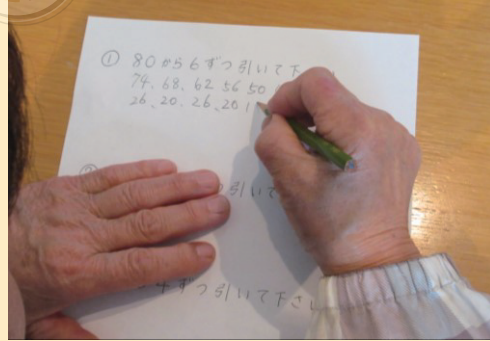 ① 80から6ずつ引いて下
74、68、62 56 50
26、20、26、20 1
引いて
4ずつ引いて下さい